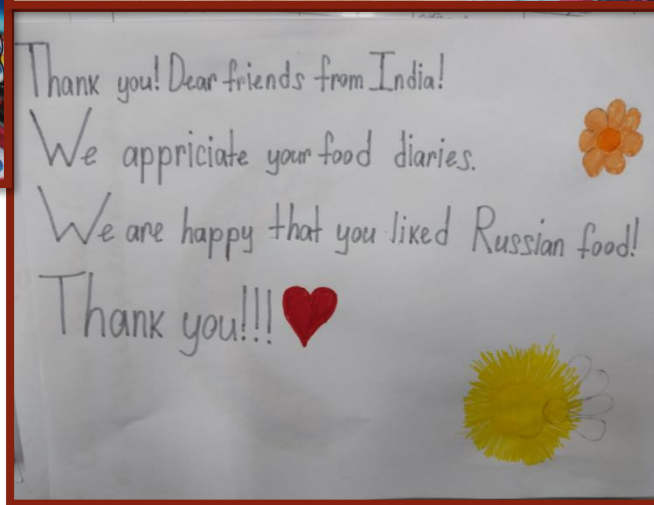 Thank you! Dear friends from India!
We appriciate your food diaries.
We are happy that you liked Russian food!
Thank you!!!